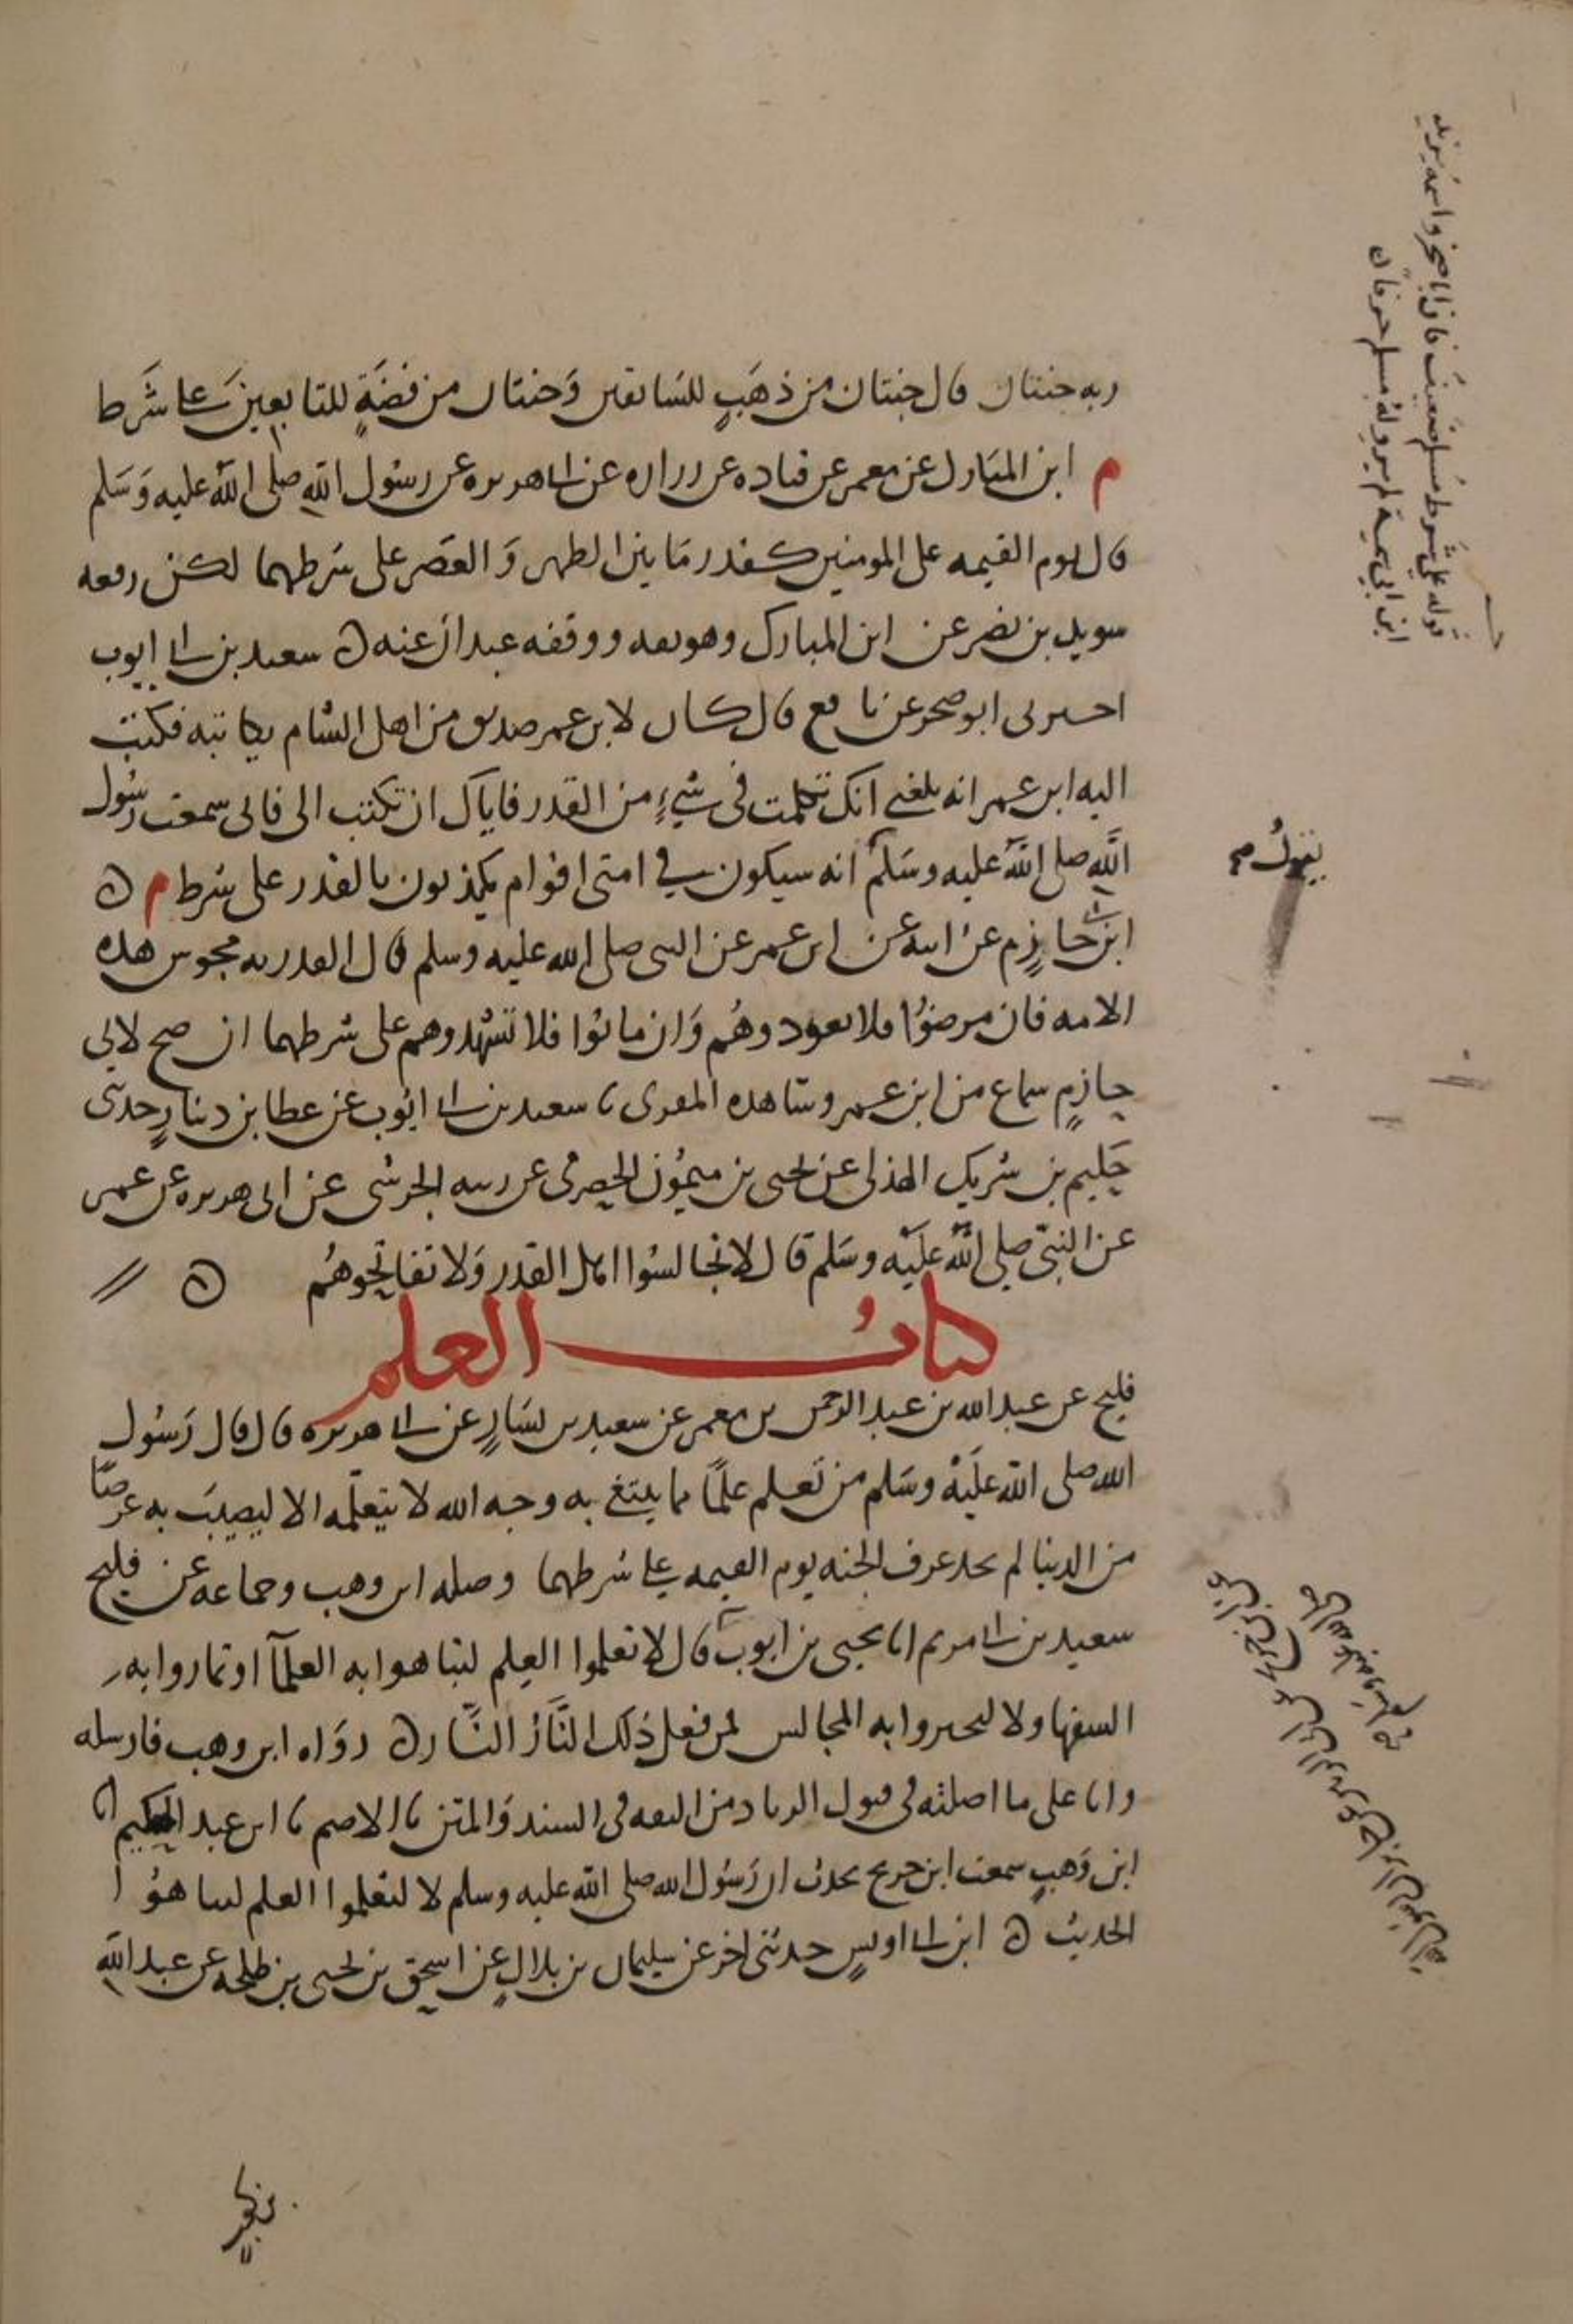 ربه جنتان قال جنتان من ذهب للسابقين وجنتان من فضة للتابعين على شرط
م ابن المبارك عن معمر عن قتاده عن زراره عن ابى هريره عن رسول الله صلى الله عليه وسلم
قال يوم القيمه على المومنين كقدر ما بين الظهر والعصر على شرطهما لكن رفعه
سويد بن نصر عن ابن المبارك وهو ثقه ووقفه عبدان عنه ن سعيد بن ابى ايوب
اخبرنى ابو صخر عن نافع قال كان لابن عمر صديق من اهل الشام يكاتبه فكتب
اليه ابن عمر انه بلغنى انك تكلمت فى شيء من القدر فاياك ان تكتب الى فانى سمعت رسول
الله صلى الله عليه وسلم انه سيكون في امتى اقوام يكذبون بالقدر على شرط م ن
ابن ابى حازم عن ابيه عن ابن عمر عن النبى صلى الله عليه وسلم قال القدريه مجوس هذه
الامه فان مرضوا فلا تعودوهم وان ماتوا فلا تشهدوهم على شرطهما ان صح لابي
حازم سماع من ابن عمر وشاهده المقرى نا سعيد بن ابى ايوب عن عطا بن دينار حدثنى
حكيم بن شريك الهذلى عن يحيى بن ميمون الحضرمى عن ربيعه الجرشى عن ابى هريره عن عمر
عن النبي صلى الله عليه وسلم قال لا تجالسوا اهل القدر ولا تفاتحوهم ن
كتاب العلم
فليح عن عبد الله بن عبد الرحمن بن معمر عن سعيد بن يسار عن ابى هريره قال قال رسول
الله صلى الله عليه وسلم من تعلم علما مما يبتغى به وجه الله لا يتعلمه الا ليصيب به عرضا
من الدنيا لم يجد عرف الجنه يوم القيمه على شرطهما وصله ابن وهب وجماعه عن فليح
سعيد بن ابى مريم انا يحيى بن ايوب قال لا تعلموا العلم لتباهوا به العلماء او تماروا به
السفها ولا لتحيزوا به المجالس فمن فعل ذلك النار النار ن رواه ابن وهب فارسله
وانا على ما اصلته فى قبول الزياده من الثقه فى السند والمتن نا الاصم نا ابن عبد الحكيم انا
ابن وهب سمعت ابن جريج يحدث ان رسول الله صلى الله عليه وسلم لا لتعلموا العلم لتباهوا
الحديث ن ابن ابى اويس حدثنى اخى عن سليمان بن بلال عن اسحق بن يحيى بن طلحه عن عبد الله
قوله على شرط مسلم ضعيف فان ابا صخر واسمه يزيد
ابن ابى سمية لم يرو له مسلم حرفا ن
يقول صح